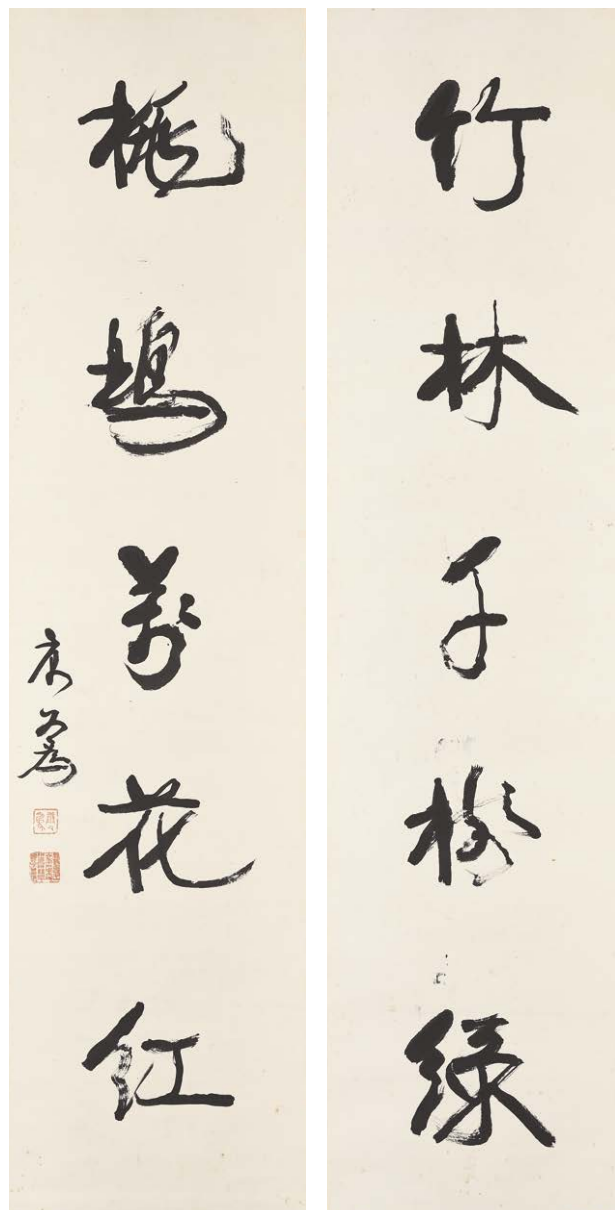 竹林千樹綠
桃塢萬花紅
康有為